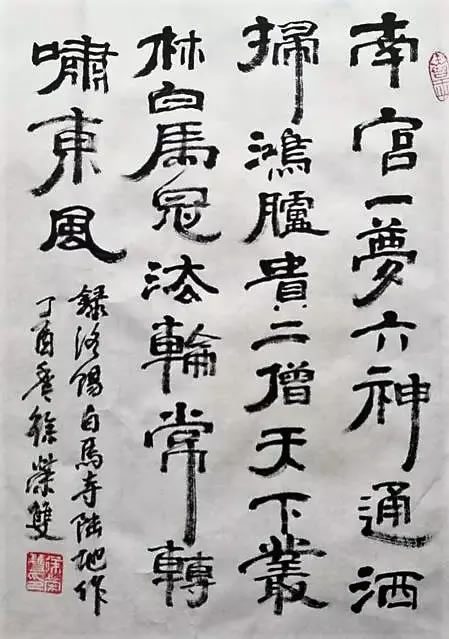 南宫一夢六神通洒
掃鴻臚貴二僧天下叢
林白馬冠法輪常轉
嘯東風
録洛陽白馬寺陆旭作
丁酉春徐榮雙